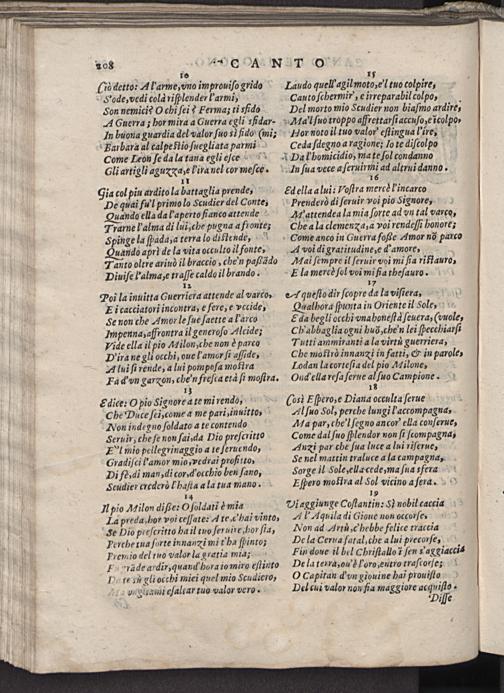 208 CANTO
10
Ciò detto: A l'arme, vno improuiso grido
S'ode, vedi colà risplender l'armi,
Son nemici? O chi sei? Ferma; ti sfido
A Guerra; hor mira a Guerra egli sfidar-
In buona guardia del valor suo sì fido (mi;
Barbara al calpestio suegliata parmi
Come Leon se da la tana egli esce
Gli artigli aguzza, e l'ira nel cor mesce.
11
Già col piu ardito la battaglia prende,
De quai fu'l primo lo Scudier del Conte,
Quando ella da l'aperto fianco attende
Trarne l'alma di lui, che pugna a fronte;
Spinge la spada; a terra lo distende,
Quando aprì de la vita occulto il fonte,
Tanto oltre ariuò il braccio, che'n passãdo
Diuise l'alma, e trasse caldo il brando.
12
Poi la inuitta Guerriera attende al varco,
E i cacciatori incontra, e fere, e vccide,
Se non che Amor le sue saette a l'arco
Impenna, affronta il generoso Alcide;
Vide ella il pio Milon, che non è parco
D'ira ne gli occhi, oue l'amor si asside,
A lui si rende, a lui pomposa mostra
Fà d'vn garzon, che'n fresca età si mostra.
13
E dice: O pio Signore a te mi rendo,
Che Duce sei, come a me pari, inuitto,
Non indegno soldato a te contendo
Seruir, che se non sai, da Dio prescritto
E'l mio pellegrinaggio a te seruendo,
Gradisci l'amor mio, vedrai profitto,
Di fè, di man, di cor, d'occhio ben sano,
Scudier crederò l'hasta a la tua mano.
14
Il pio Milon disse: O soldati è mia
La preda, hor voi cessate: A te, c'hai vinto,
Se Dio prescritto ha il tuo seruire, hor sia,
Perche tua sorte innanzi mi t'ha spinto;
Premio del tuo valor la gratia mia;
Fu grãde ardir, quand'hora io miro estinto
Da te sù gli occhi miei quel mio Scudiero,
Ma vogliami esaltar tuo valor vero.
15
Laudo quell'agil moto, e'l tuo colpire,
Cauto schermir, e irreparabil colpo,
Del morto mio Scudier non biasmo ardire,
Ma'l suo troppo affrettarsi accuso, e icolpo,
Hor noto il tuo valor' estingua l'ire,
Ceda sdegno a ragione; Io te discolpo
Da l'homicidio, ma te sol condanno
In sua vece a seruirmi ad altrui danno.
16
Ed ella a lui: Vostra mercè l'incarco
Prenderò di seruir voi pio Signore,
M'attendea la mia sorte ad vn tal varco,
Che a la clemenza, a voi rendessi honore;
Come anco in Guerra fosse Amor nõ parco
A voi di gratitudine, e d'amore,
Mai sempre il seruir voi mi sia ristauro,
E la mercè sol voi mi sia thesauro.
17
A questo dir scopre da la visiera,
Qualhora spunta in Oriente il Sole,
E da begli occhi vna honestà seuera, (vuole,
Ch'abbaglia ogni huõ, che'n lei specchiarsi
Tutti ammiranti a la virtù guerriera,
Che mostrò innanzi in fatti, & in parole,
Lodan la cortesia del pio Milone,
Ond'ella resa serue al suo Campione.
18
Così Espero, e Diana occulta serue
Al suo Sol, perche lungi l'accompagna,
Ma par, che'l segno ancor' ella conserue,
Come dal suo splendor non si scompagna,
Anzi par che sua luce a lui riserue,
Se nel mattin traluce a la campagna,
Sorge il Sole, ella cede, ma sua sfera
Espero mostra al Sol vicino a sera.
19
Vi aggiunge Costantin: Sì nobil caccia
A l'Aquila di Gioue non occorse,
Non ad Artù, c'hebbe felice traccia
De la Cerua fatal, che a lui precorse,
Fin doue il bel Christallo ĩ sen s'agghiaccia
De la terra, ou'è l'oro, entro trascorse;
O Capitan d'vn giouine hai prouisto
Del cui valor non sia maggiore acquisto.
Disse